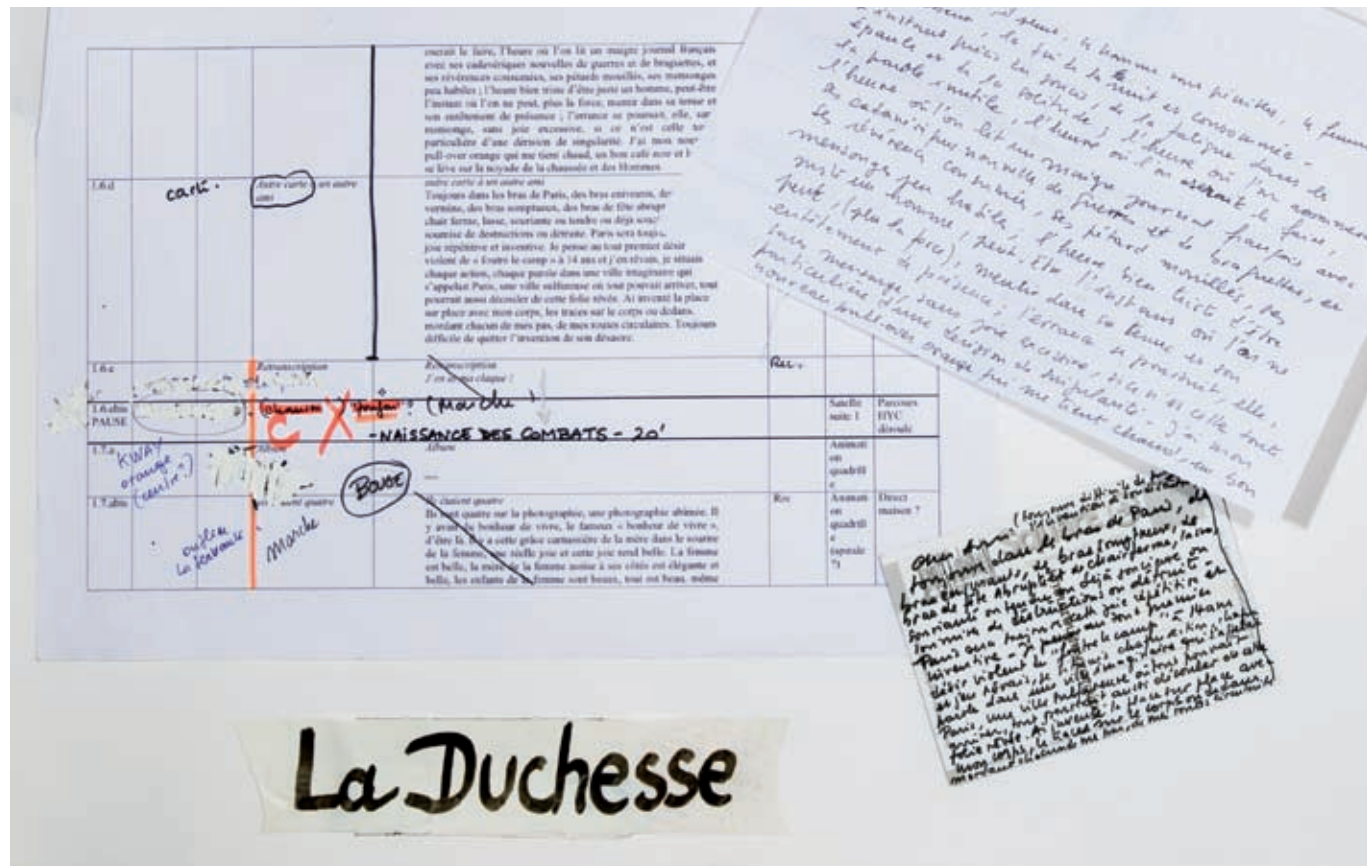 oserait le faire, l'heure où l'on lit un maigre journal français
avec ses cadavériques nouvelles de guerres et de braguettes, et
ses révérences consumées, ses pétards mouillés, ses mensonges
peu habiles ; l'heure bien triste d'être juste un homme, peut-être
l'instant où l'on ne peut, plus la force, mentir dans sa tenue et
son entêtement de présence ; l'errance se poursuit, elle, sans
mensonge, sans joie excessive, si ce n'est celle
particulière d'une dérision de singularité. J'ai mon
pull-over orange qui me tient chaud, un bon café noir et
se lève sur la noyade de la chaussée et des Hommes
1.6.d
carte.
Autre carte à un autre
ami
autre carte à un autre ami
Toujours dans les bras de Paris, des bras enivrants, de
vermine, des bras somptueux, des bras de fête
chair ferme, lasse, souriante ou tendre ou déjà
soumise de destructions ou détruite. Paris sera
joie répétitive et inventive. Je pense au tout premier désir
violent de « foutre le camp » à 14 ans et j'en rêvais, je situais
chaque action, chaque parole dans une ville imaginaire qui
s'appelait Paris, une ville sulfureuse où tout pouvait arriver, tout
pourrait aussi découler de cette folie rêvée. Ai inventé la place
sur place avec mon corps, les traces sur le corps ou dedans,
mordant chacun de mes pas, de mes routes circulaires. Toujours
difficile de quitter l'invention de son désastre.
1.6.e
Retranscription
Retranscription
J'en ai ma claque !
Rec.
1.6.ebis
PAUSE
(Marche)
Satellite
suite 1
Parcours
HYC
déroulé
C X
- NAISSANCE DES COMBATS - 20'
1.7.a
Album
Album
Animati
on
quadrill
e
KWAY
orange
(centre?)
BOUGE
1.7.abis
quatre
Marche
Ils étaient quatre
Ils sont quatre sur la photographie, une photographie abîmée. Il
y avait du bonheur de vivre, le fameux « bonheur de vivre »,
d'être là, il y a cette grâce carnassière de la mère dans le sourire
de la femme, une réelle joie et cette joie rend belle. La femme
est belle, la mère de la femme assise à ses côtés est élégante et
belle, les enfants de la femme sont beaux, tout est beau, même
Rec
Animati
on
quadrill
e
(spirale
?)
Direct
maison ?
la fin de la nuit est consommée
de la fatigue dans les
épaules et de la solitude ; l'heure où l'on
la parole inutile, l'heure où l'on oserait le faire,
l'heure où l'on lit un maigre journal français avec
ses cadavériques nouvelles de guerres et de braguettes, et
ses révérences consumées, ses pétards mouillés, ses
mensonges peu habiles, l'heure bien triste d'être
juste un homme, peut-être l'instant où l'on ne
peut (plus la force), mentir dans sa tenue et son
entêtement de présence ; l'errance se poursuit, elle,
sans mensonge, sans joie excessive, si ce n'est celle toute
particulière d'une dérision de singularité. J'ai mon
nouveau pull-over orange qui me tient chaud, un bon
toujours dans les bras de Paris, des
bras enivrants, de bras somptueux, de
bras de fête abrupte et de chair ferme, lasse,
souriante ou tendre ou déjà
soumise de destructions ou détruite -
Paris sera toujours cette joie répétitive et
inventive - Je pense au tout premier
désir violent de "foutre le camp" à 14 ans
et j'en rêvais, je situais chaque action, chaque
parole dans une ville imaginaire qui s'appelait
Paris, une ville sulfureuse où tout pouvait
arriver, tout pourrait aussi découler de cette
folie rêvée. Ai inventé la place sur place avec
mon corps, les traces sur le corps ou dedans,
mordant chacun de mes pas, de mes routes circulaires
La Duchesse